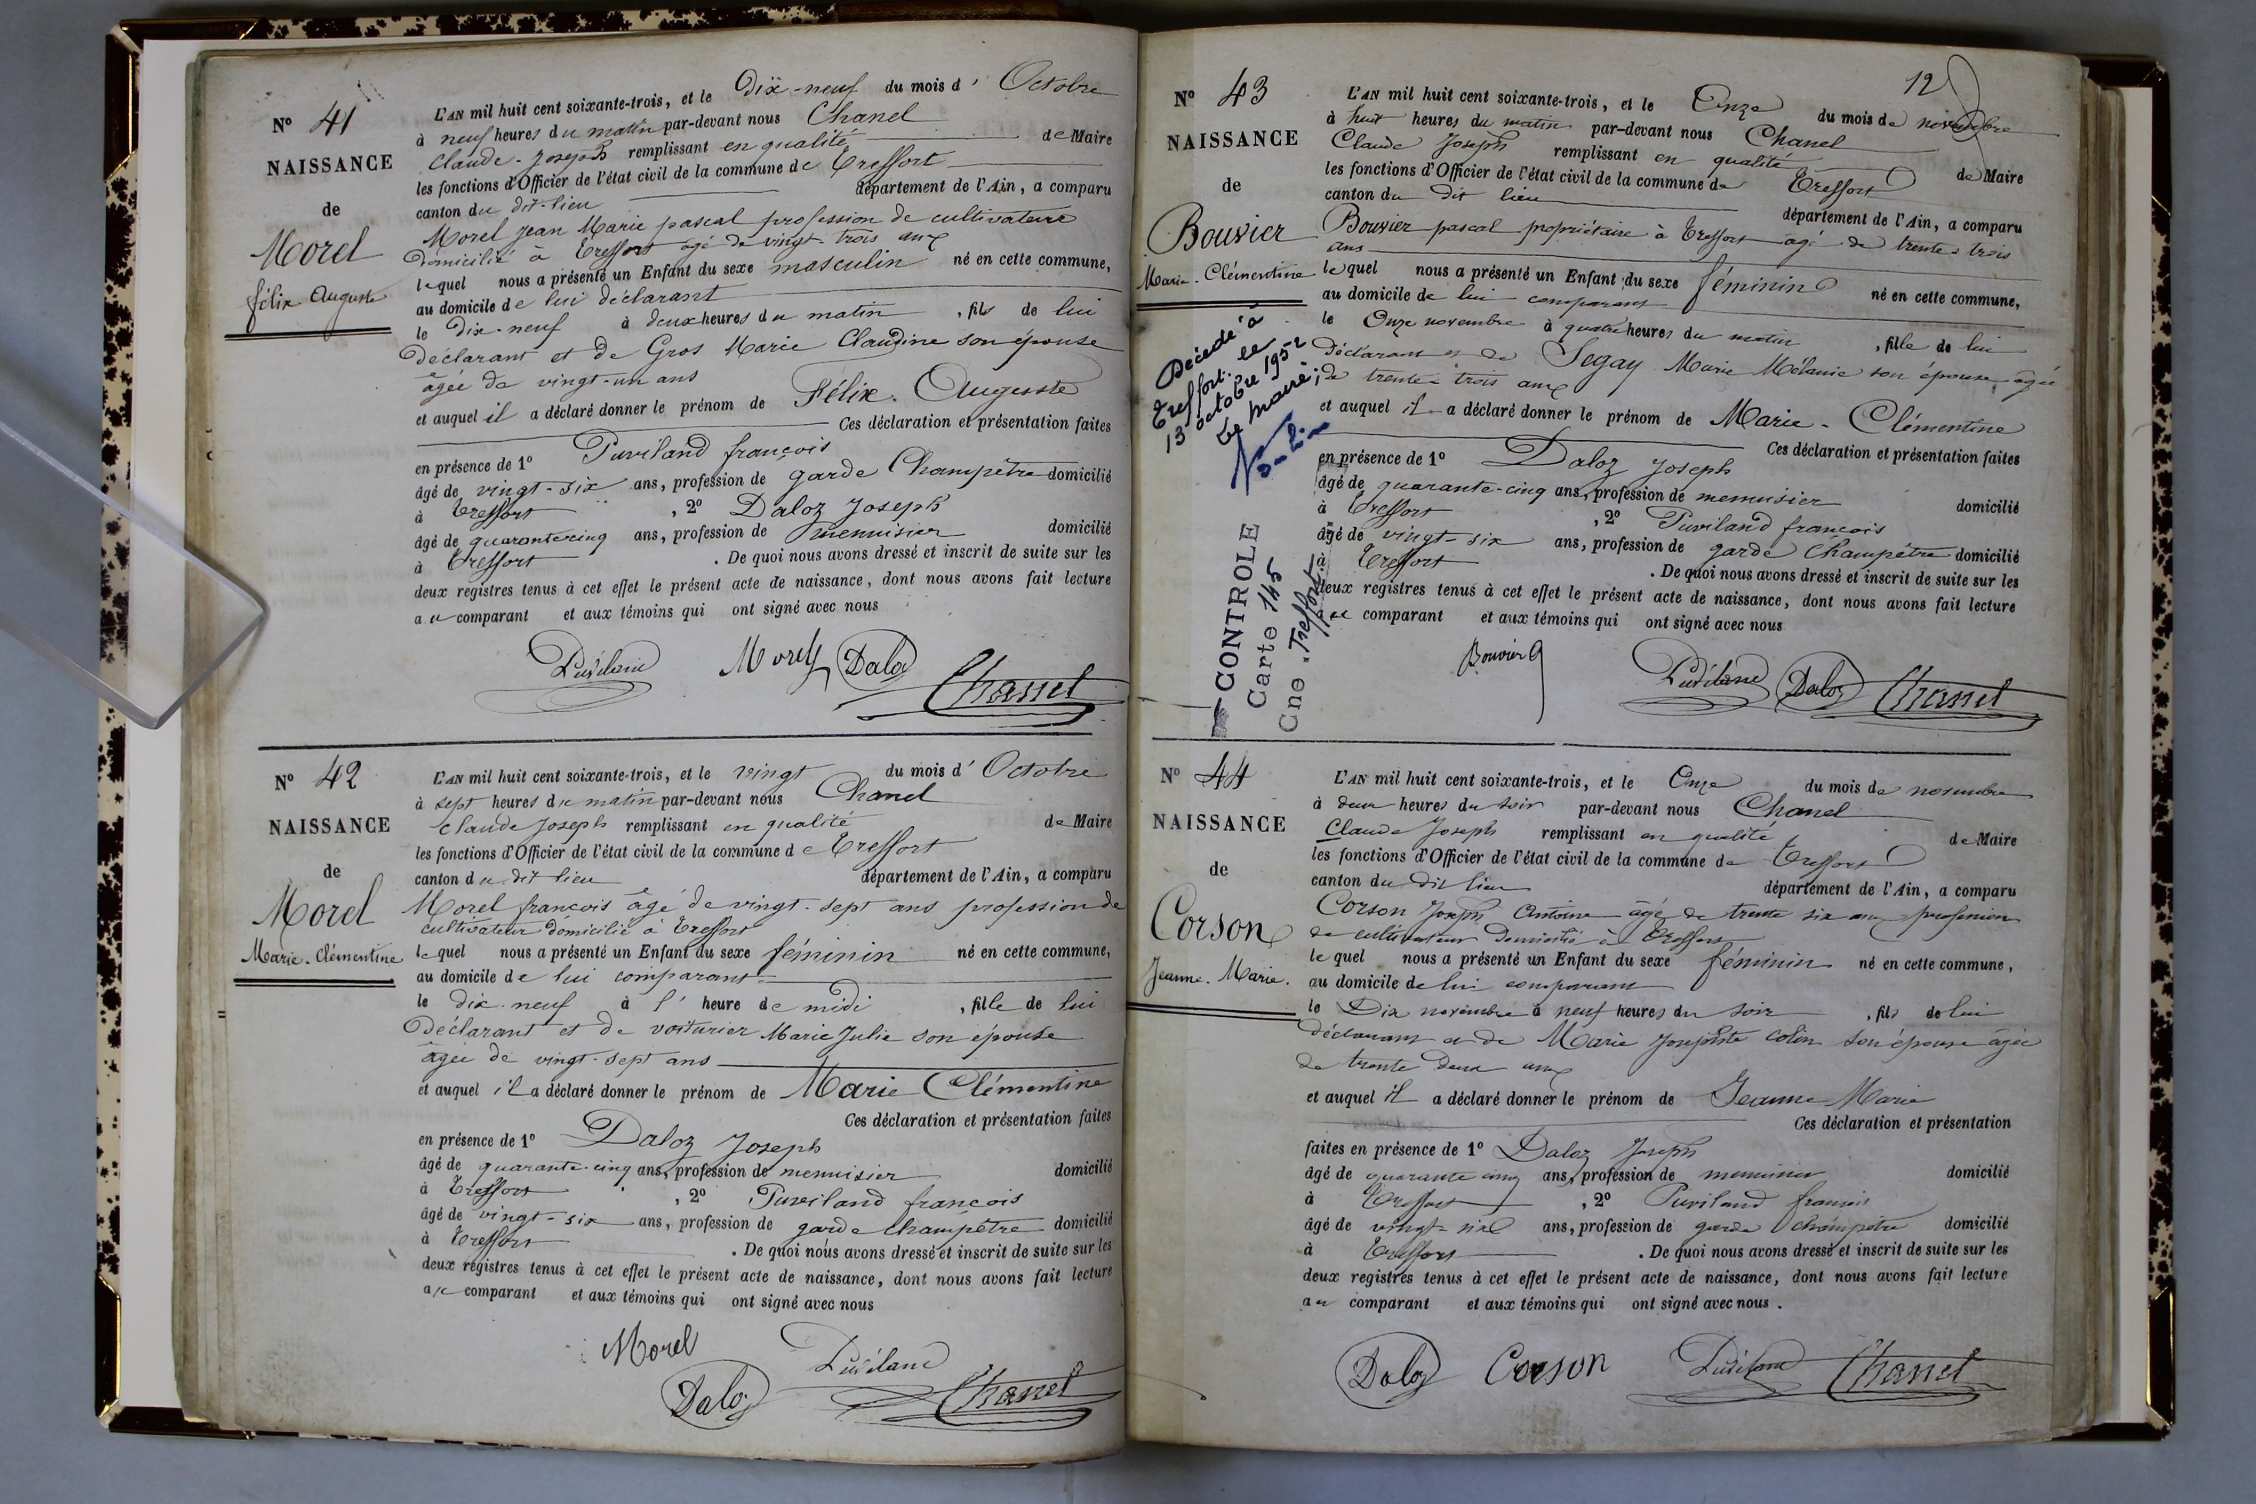 N° 41
NAISSANCE
de
Morel
félix Auguste
L'AN mil huit cent soixante-trois, et le Dix-neuf du mois d' Octobre
à neuf heures du matin par-devant nous Chanel
Claude-Joseph remplissant en qualité de Maire
les fonctions d'Officier de l'état civil de la commune de Treffort
canton du dit-lieu département de l'Ain, a comparu
Morel Jean Marie pascal profession de cultivateur
domicilié à Treffort âgé de vingt-trois ans
lequel nous a présenté un Enfant du sexe masculin né en cette commune,
au domicile de lui déclarant
le dix-neuf à deux heures du matin, fils de lui
Déclarant et de Gros Marie Claudine son épouse
âgée de vingt-un ans
et auquel il a déclaré donner le prénom de Félix. Auguste
Ces déclaration et présentation faites
en présence de 1° Puviland françois
âgé de vingt-six ans, profession de garde Champêtre domicilié
à Treffort, 2° Daloz Joseph
âgé de quarante cinq ans, profession de menuisier domicilié
à Treffort. De quoi nous avons dressé et inscrit de suite sur les
deux registres tenus à cet effet le présent acte de naissance, dont nous avons fait lecture
au comparant et aux témoins qui ont signé avec nous
Puviland Morel Daloz
Chanel
N° 42
NAISSANCE
de
Morel
Marie-Clémentine
L'AN mil huit cent soixante-trois, et le vingt du mois d' Octobre
à sept heures du matin par-devant nous Chanel
Claude Joseph remplissant en qualité de Maire
les fonctions d'Officier de l'état civil de la commune de Treffort
canton du dit lieu département de l'Ain, a comparu
Morel françois âgé de vingt-sept ans profession de
cultivateur domicilié à Treffort
lequel nous a présenté un Enfant du sexe féminin né en cette commune,
au domicile de lui comparant
le dix-neuf à l' heure de midi, fille de lui
Déclarant et de voiturier Marie Julie son épouse
âgée de vingt-sept ans
et auquel il a déclaré donner le prénom de Marie Clémentine
Ces déclaration et présentation faites
en présence de 1° Daloz Joseph
âgé de quarante-cinq ans, profession de menuisier domicilié
à Treffort, 2° Puviland françois
âgé de vingt-six ans, profession de garde Champêtre domicilié
à Treffort. De quoi nous avons dressé et inscrit de suite sur les
deux registres tenus à cet effet le présent acte de naissance, dont nous avons fait lecture
au comparant et aux témoins qui ont signé avec nous
Morel Puviland
Daloz Chanel
12
N° 43
NAISSANCE
de
Bouvier
Marie-Clémentine
Décédé à
Treffort le
13 octobre 1952
Le Maire;
CONTROLE
Carte 145
Cne Treffort
L'AN mil huit cent soixante-trois, et le Onze du mois de novembre
à huit heures du matin par-devant nous Chanel
Claude Joseph remplissant en qualité de Maire
les fonctions d'Officier de l'état civil de la commune de Treffort
canton du dit lieu département de l'Ain, a comparu
Bouvier pascal propriétaire à Treffort âgé de trente-trois
ans
lequel nous a présenté un Enfant du sexe féminin né en cette commune,
au domicile de lui comparant
le Onze novembre à quatre heures du matin, fille de lui
déclarant et de Segay Marie Mélanie son épouse, âgée
de trente-trois ans
et auquel il a déclaré donner le prénom de Marie-Clémentine
Ces déclaration et présentation faites
en présence de 1° Daloz Joseph
âgé de quarante-cinq ans, profession de menuisier domicilié
à Treffort, 2° Puviland françois
âgé de vingt-six ans, profession de garde Champêtre domicilié
à Treffort. De quoi nous avons dressé et inscrit de suite sur les
deux registres tenus à cet effet le présent acte de naissance, dont nous avons fait lecture
au comparant et aux témoins qui ont signé avec nous
Bouvier Puviland Daloz Chanel
N° 44
NAISSANCE
de
Corson
Jeanne-Marie.
L'AN mil huit cent soixante-trois, et le Onze du mois de novembre
à deux heures du soir par-devant nous Chanel
Claude Joseph remplissant en qualité de Maire
les fonctions d'Officier de l'état civil de la commune de Treffort
canton du dit lieu département de l'Ain, a comparu
Corson Joseph Antoine âgé de trente six ans profession
de cultivateur domicilié à Treffort
lequel nous a présenté un Enfant du sexe féminin né en cette commune,
au domicile de lui comparant
le Dix novembre à neuf heures du soir, fils de lui
déclarant et de Marie Josephte Colin son épouse âgée
de trente deux ans
et auquel il a déclaré donner le prénom de Jeanne-Marie
Ces déclaration et présentation
faites en présence de 1° Daloz Joseph
âgé de quarante cinq ans, profession de menuisier domicilié
à Treffort, 2° Puviland françois
âgé de vingt-six ans, profession de garde champêtre domicilié
à Treffort. De quoi nous avons dressé et inscrit de suite sur les
deux registres tenus à cet effet le présent acte de naissance, dont nous avons fait lecture
au comparant et aux témoins qui ont signé avec nous.
Daloz Corson Puviland Chanel